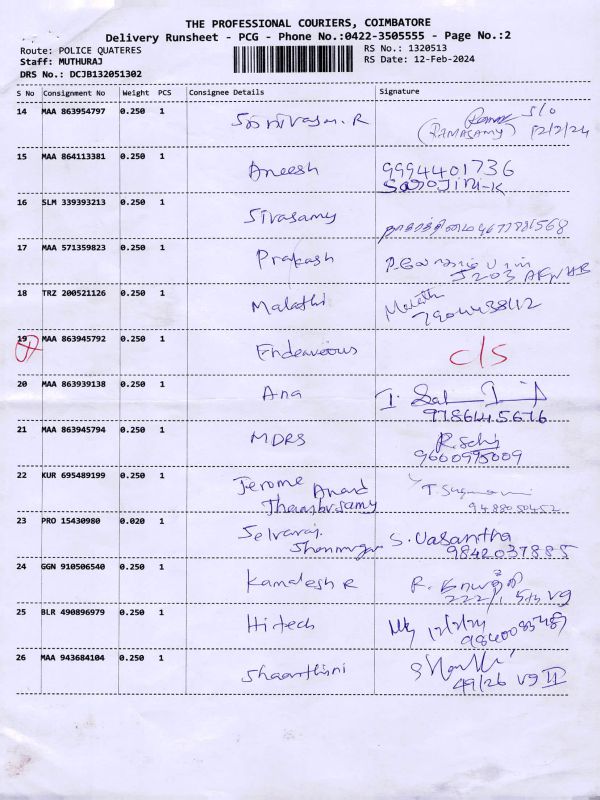 THE PROFESSIONAL COURIERS, COIMBATORE
Delivery Runsheet - PCG - Phone No.:0422-3505555 - Page No.:2
Route: POLICE QUATERES RS No.: 1320513
Staff: MUTHURAJ RS Date: 12-Feb-2024
DRS No.: DCJB132051302
S No Consignment No Weight PCS Consignee Details Signature
14 MAA 863954797 0.250 1 Srinivasan. R S/o
(RAMASAMY) 12/2/24
15 MAA 864113381 0.250 1 Aneesh 9994401736
SaroJini-K
16 SLM 339393213 0.250 1 Sivasamy
17 MAA 571359823 0.250 1 Prakash
J203
18 TRZ 200521126 0.250 1 Malathi Malathi
19 MAA 863945792 0.250 1 Endeaveous c/s
20 MAA 863939138 0.250 1 Ana
9786415676
21 MAA 863945794 0.250 1 MDRS
9600975009
22 KUR 695489199 0.250 1 Jerome Anand
Thambusamy
9488050452
23 PRO 15430980 0.020 1 Selvaraj. S. Vasantha
9842037885
24 GGN 910506540 0.250 1 Kamalesh R
25 BLR 490896979 0.250 1 Hitech 12/2/24
26 MAA 943684104 0.250 1 Shaanthini
49/26 V9 II